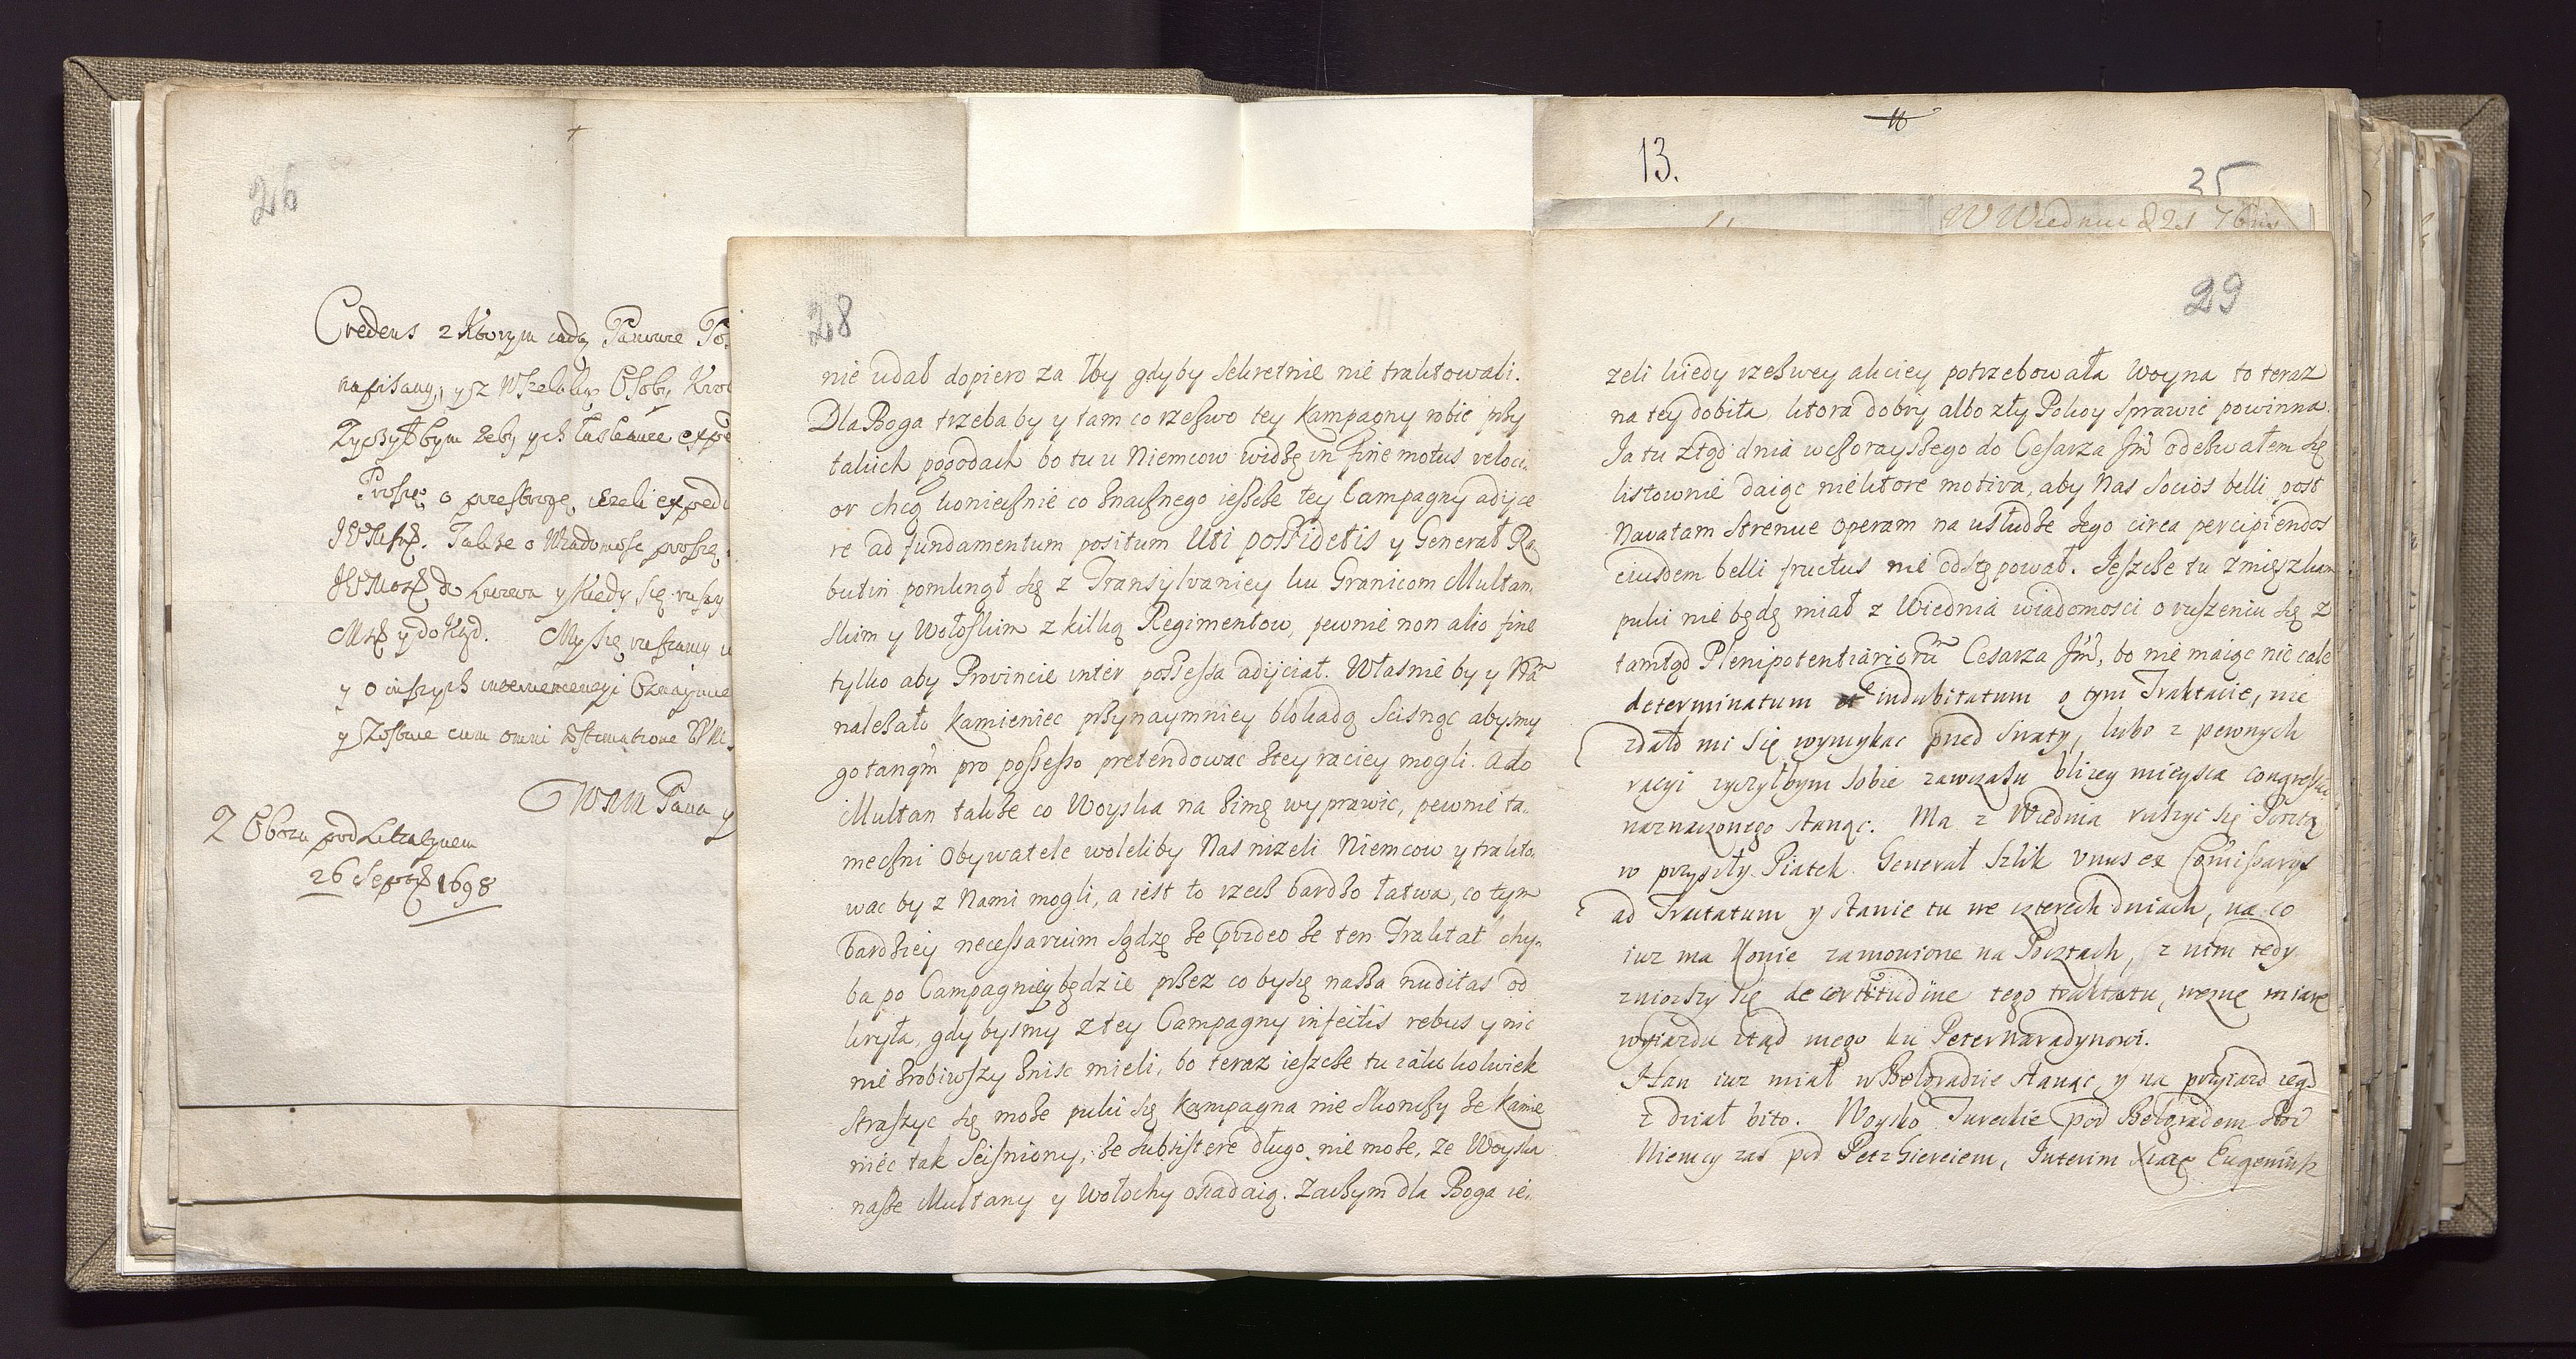 26
Credens z Ktorym iadą Panowie Po
napisany, y z Wszelkiey Osoby Kro
Zyczyłbym zeby ych łaskawie expe
Proszę o przestrogę, iezeli expedi
JKMsci. Takze o Wiadomosc proszę
JKMosci do Lwowa y Kiedy się ruszy
Msci y dokąd. My się ruszamy
y o inszych
y Zostaie cum omni æstimatione WM
WMM Pana y
Z Obozu pod
26 Sepbr 1698
28
nie udał dopiero za łby gdyby sekretnie nie traktowali.
Dla Boga trzeba by y tam co rzeswo tey Kampagny robic przy
takich pogodach bo tu u Niemcow widzę in fine motus veloci-
or chcą koniecznie co znacznego ieszcze tey Campagny adijce
re ad fundamentum positum Uti possidetis y Generał Ra
butin pomknął się z Transylvaniey ku Granicom Multan-
skim y Wołoskim z kilką Regimentow, pewnie non alio fine
tylko aby Provincie inter possessa adijciał. Własnie by y Nam
nalezało Kamieniec przynaymniey blokadą scisnąc abysmy
go tanqm pro possesso pretendowac ztey raciey mogli. A do
Multan takze co Woyska na zimę wyprawic, pewnie ta-
meczni Obywatele woleliby Nas nizeli Niemcow y trakto-
wac by z Nami mogli, a iest to rzecz bardzo łatwa, co tym
bardziey necessarium sądzę ze prævideo ze ten Traktat chy-
ba po Campagniey będzie przez co by się nasza nuditas od
kryła, gdy bysmy z tey Campagny infectis rebus y nic
nie zrobiwszy znisc mieli, bo teraz ieszcze tu iako kolwiek
straszyc się moze puki się Kampagna nie skonczy ze Kamie
niec tak scisniony, ze subsistere długo nie moze, ze Woyska
nasze Multany y Wołochy osiadaią. Zaczym dla Boga ie-
13.
10
35
W Wiedniu d 21 7bris
29
zeli kiedy rzeswey akciey potrzebowała Woyna to teraz
na tey dobiła ktora dobry albo zły Pokoy sprawic powinna.
Ja tu ztąd dnia wczorayszego do Cesarza Jmci odezwałem się
listownie daiąc niektore motiva, aby Nas socios belli post
Navatam strenue operam na usłudze Jego circa percipiendos
eiusdem belli fructus nie odstępował. Jeszcze tu zmieszkam
puki nie będę miał z Wiednia wiadomosci o ruszeniu się z
tamtąd Plenipotentiariorum Cesarza Jmci, bo nie maiąc nic cale
determinatum et indubitatum o tym Traktacie, nie
zdało mi się wymykac przed swaty, lubo z pewnych
racyi zyczyłbym sobie zawczasu blizey mieysca congressui
naznaczonego stanąc. Ma z Wiednia ruszyc się Posztą
w przyszły Piątek Generał Szlik unus ex Comissarys
ad Tractatum y stanie tu we czterech dniach, na co
iuz ma Konie zamowione na Posztach, z nim tedy
zniozszy się de certitudine tego traktatu, wezmę miarę
wyiazdu ztąd mego ku Peterwaradynowi.
Han iuz miał w Belgradzie stanąc, y na przyiazd iego
z dział bito. Woysko Tureckie pod Belgradem stoi
Niemcy zas pod Petz Interim Xiąze Eugeniusz